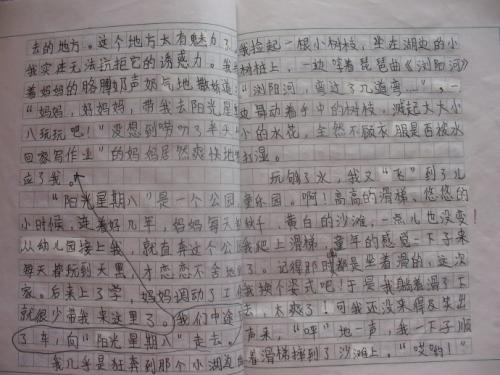 去的地方。这个地方太有魅力了
我实在无法抗拒它的诱惑力。我
着妈妈的胳膊奶声奶气地撒娇道
“妈妈，好妈妈，带我去阳光星
八玩玩吧！”没想到唠叨了半天
回家写作业”的妈妈居然爽快地
应了我。
“阳光星期八”是一个公园
小时候，连着好几年，妈妈每天
从幼儿园接上我，就直奔这个公
每天摔玩到天黑，才恋恋不舍地
家。后来上了学，妈妈调动了工
就很少带我来这里了。我们中途
了车，向“阳光星期八”走去。
我几乎是狂奔到那个小湖边
我捡起一根小树枝，坐在湖边的小
树桩上，一边哼着琵琶曲《浏阳河》
“浏阳河，弯过了几道弯……”，一
边舞动着手中的树枝，溅起大大小
小的水花，全然不顾衣服是否被水
打湿。
玩够了水，我又“飞”到了儿
童乐园。啊！高高的滑梯、悠悠的
秋千，黄白的沙滩，一点儿也没变！
我爬上滑梯，童年的感觉一下子来
了。记得那时都是坐着滑的，这次
我换个姿式吧！于是我躺着滑了下
去，太爽了！可我还没来得及笑出
声来，“呯”地一声，我一下子顺
着滑梯摔到了沙滩上。“哎哟！”